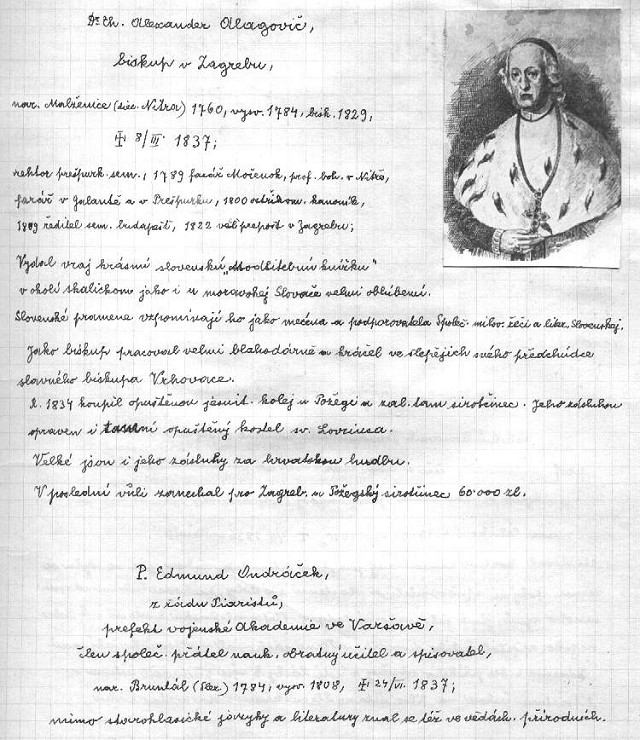 Dr. th. Alexander Alagovič,
biskup v Zagrebu,
nar. Malženice (diec. Nitra) 1760, vysv. 1784, bisk. 1829,
8/III. 1837;
rektor prešpurk. sem., 1789 farář Močenok, prof. boh. v Nitře,
farář v Galantě a v Prešpurku, 1800 ostřihom. kanovník,
1809 ředitel sem. budapešt, 1822 velí prepošt v Zagrebu;
Vydal vraj krásnú slovenskú „Modlitebnú knižku"
v okolí skalickom jako i u moravskej Slovače velmi oblúbenú.
Slovenské pramene vzpomínajú ho jako mecéna a podporovatela Společ. milov. řeči a liter. Slovenskej.
Jako biskup pracoval velmi blahodárně a kráčel ve šlépějích svého předchúdce
slavného biskupa Vrhovace.
R. 1834 koupil opuštěnou jesuit. kolej u Požegi a zal. tam sirotčinec. Jeho zásluhou
opraven i tamní opuštěný kostel sv. Lovrinca.
Velké jsou i jeho zásluhy za hrvatskou hudbu.
V poslední vůli zanechal pro Zagreb. a Požegský sirotčinec 60.000 zl.
P. Edmund Ondráček,
z řádu Piaristů,
prefekt vojenské Akademie ve Varšavě,
člen společ. přátel nauk, obratný učitel a spisovatel,
nar. Bruntál (Slez.) 1784, vysv. 1808, 24/VI. 1837;
mimo staroklasické jazyky a literatury znal se též ve vědách přírodních.